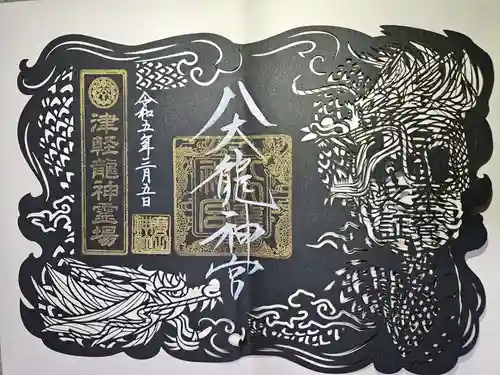 八大龍神宮
令和五年三月五日
津軽龍神霊場